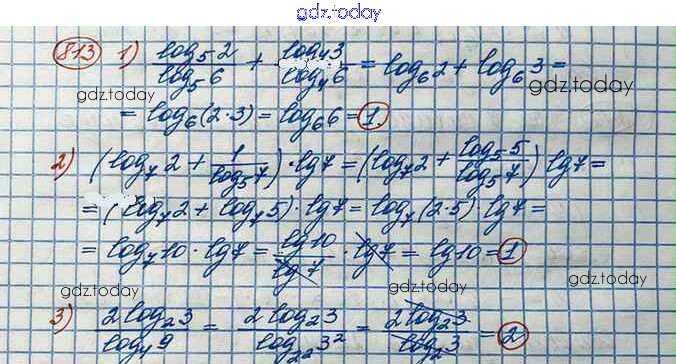 gdz.today
813 1) log₅2/log₅6 + log₄3/log₄6 = log₆2 + log₆3 =
gdz.today
gdz.today
= log₆(2·3) = log₆6 = 1.
2) (log₇2 + 1/log₅7)·lg7 = (log₇2 + log₅5/log₅7) lg7 =
= (log₇2 + log₇5)·lg7 = log₇(2·5)·lg7 =
= log₇10·lg7 = lg10/lg7 · lg7 = lg10 = 1
gdz.today
gdz.today
gdz.today
3) 2log₂3/log₄9 = 2log₂3/log₂²3² = 2log₂3/log₂3 = 2